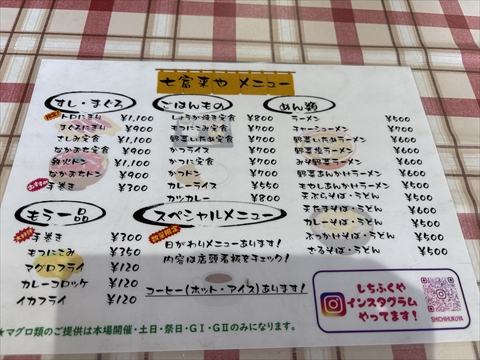 七富来や メニュー
すし・まぐろ
トロにぎり ¥1,100
まぐろにぎり ¥900
さしみ定食 ¥1,100
なかおち定食 ¥900
鉄火ドン ¥1,100
なかおちドン ¥900
おすすめ 手巻き ¥300
ごはんもの
しょうが焼き定食 ¥800
もつにこみ定食 ¥700
野菜いため定食 ¥700
カツライス ¥700
かつに定食 ¥700
カツドン ¥700
カレーライス ¥550
カツカレー ¥800
めん類
ラーメン ¥500
チャーシューメン ¥700
野菜いためラーメン ¥600
野菜塩ラーメン ¥600
みそ野菜ラーメン ¥600
野菜あんかけラーメン ¥600
もやしあんかけラーメン ¥600
天ぷらそば・うどん ¥550
天たまそば・うどん ¥600
カレーそば・うどん ¥500
ぶっかけそば・うどん ¥500
ざるそば・うどん ¥500
もう一品
手巻き ¥300
もつにこみ ¥350
マグロフライ ¥120
カレーコロッケ ¥120
イカフライ ¥120
スペシャルメニュー
数量限定
日がわりメニューあります!
内容は店頭看板をチェック!
コーヒー(ホット・アイス)あります!
しちふくや
インスタグラム
やってます!
SHICHIHUKUYA
★マグロ類のご提供は本場開催・土日・祭日・GⅠ・GⅡのみとなります。